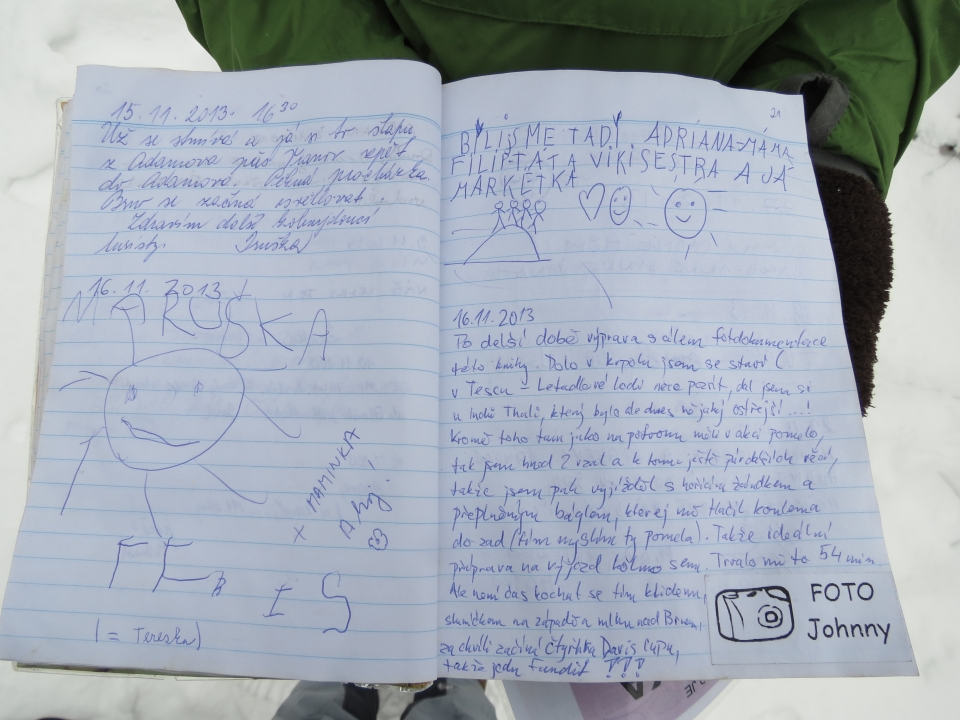 15.11.2013. 16 30
Už se stmívá a já si tr šlapu
z Adamova přes zpět
do Adamova. Pěkná procházka
Brno se začíná osvětlovat.
Zdravím další kolemjdoucí
turisty.
16.11.2013
MARUŠKA
× MAMINKA
Ahoj!
(= Tereska)
21
BYLI SME TADY. ADRIANA-MÁMA
FILIP-TÁTA VIKI SESTRA A JÁ
MARKÉTKA
16.11.2013
Po delší době výprava s cílem fotodokumentace
této knihy. Dole v krpolu jsem se stavil
v Tescu - Letadlové lodi nece pařit, dal jsem si
u Indů Thali, který bylo dodnes nějaký ostřejší ...!
Kromě toho tam jako na potvoru měli v akci pomelo,
tak jsem hned 2 vzal a k tomu ještě věcí,
takže jsem pak vyjížděl s hořícím žaludkem a
přeplněným báglem, kterej mě tlačil koulema
do zad (tím myslím ty pomela). Takže ideální
příprava na výjezd kolmo sem. Trvalo mi to 54 min
Ale není čas kochat se tím klidem,
sluníčkem na západě a mlhou nad Brnem,
za chvíli začíná čtyřhra Davis Cupu,
takže jedu fandit !!!
FOTO
Johnny